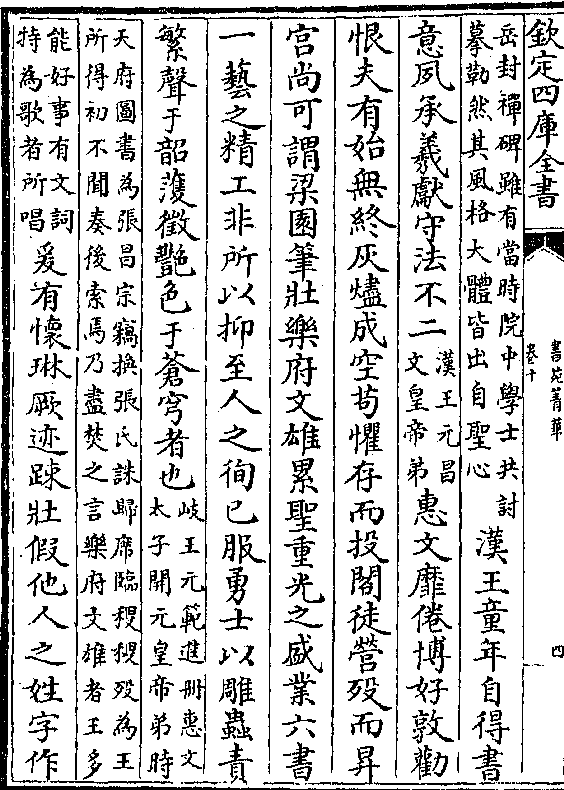 欽定四庫全書
書苑菁華
卷十
四
岳封禪碑雖有當時院中學士共討
摹勒然其風格大體皆出自聖心
漢王童年自得書
意夙承羲獻守法不二
漢王元昌
文皇帝弟
惠文靡倦博好敦勸
恨夫有始無終灰燼成空茍懼存而投閣徒營殁而昇
宫尚可謂梁園筆壯樂府文雄累聖重光之盛業六書
一藝之精工非所以抑至人之徇已服勇士以雕蟲責
繁聲于韶䕶徵艷色于蒼穹者也
岐王元範進冊惠文
太子開元皇帝弟時
天府圖書為張昌宗竊換張氏誅歸席臨稷稷殁為王
所得初不聞奏後索焉乃盡焚之言樂府文雄者王多
能好事有文詞
特為歌者所唱
爰有懷琳厥迹踈壯假他人之姓字作